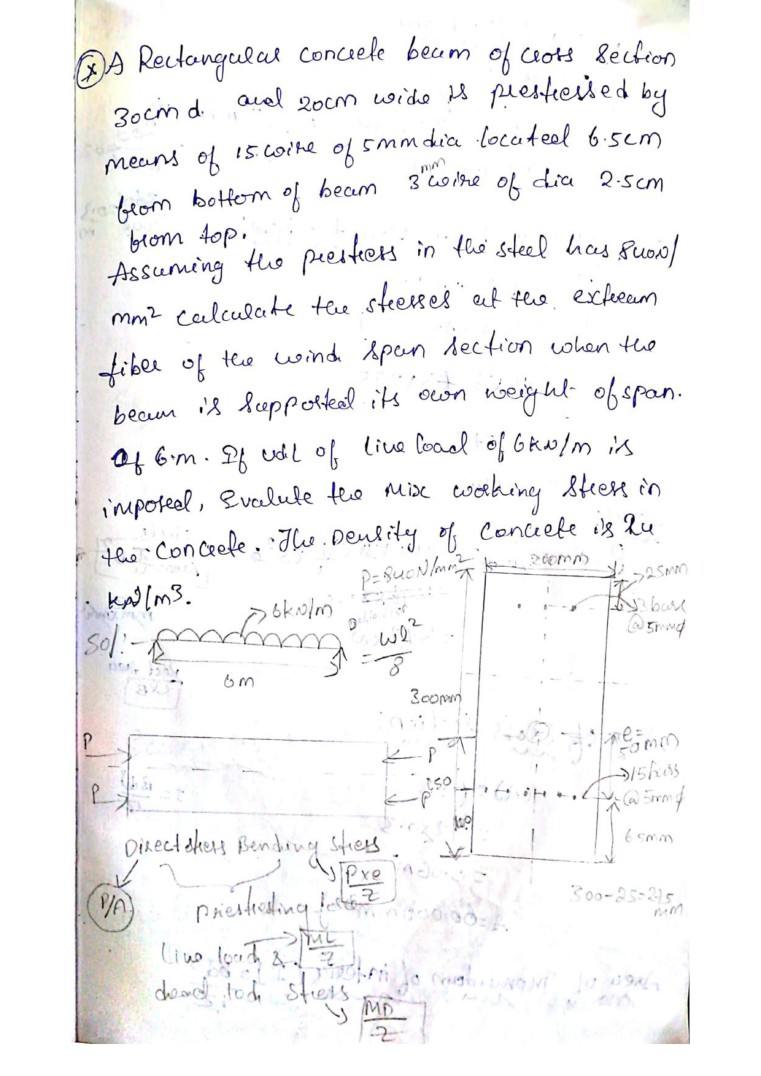 (x) A Rectangular concrete beam of cross section
30cm d. and 20cm wide is prestressed by
means of 15 wire of 5mm dia located 6.5cm
from bottom of beam 3 mm wire of dia 2.5cm
from top.
Assuming the prestress in the steel has 840N/
mm² calculate the stresses at the extream
fiber of the wind span section when the
beam is supported its own weight of span.
of 6.m. If udl of live load of 6kN/m is
imposed, Evalute the Mix working stress in
the concrete. The Density of concrete is 24
kN/m³.
P=840N/mm²
200mm
25mm
3 bars
@5mmφ
Sol:-
6kN/m
= wl²/8
6m
300mm
P
P
P
P
150
100
e=
50mm
15 bars
@5mmφ
65mm
Direct stress Bending stress
P/A
Pxe/Z
300-25=275
mm
Priestresting
Live load &
ML/Z
dead load stress
MD/Z